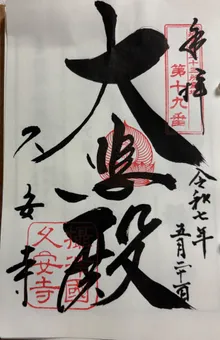 奉拝
第十九番
大悲殿
令和七年
五月二十
久安寺
摂津國
久安寺